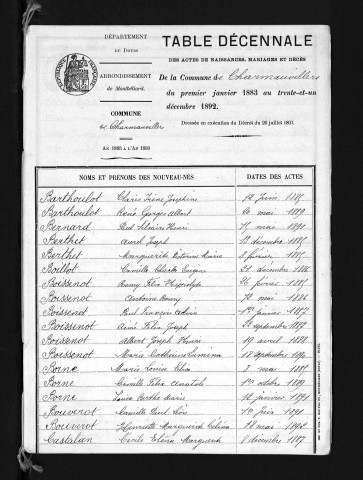 DÉPARTEMENT
du Doubs
ARRONDISSEMENT
de Montbéliard.
COMMUNE
de Charmauvillers
AN 1883 A L'AN 1893
TABLE DÉCENNALE
DES ACTES DE NAISSANCES, MARIAGES ET DÉCÈS
De la Commune de Charmauvillers
du premier janvier 1883 au trente-et-un
décembre 1892.
Dressée en exécution du Décret du 20 juillet 1807.
NOMS ET PRÉNOMS DES NOUVEAU-NÉS DATES DES ACTES
Barthoulot Claire Irène Joséphine juin 1885
Barthoulot René Georges Albert mai 1889
Bernard Paul Henri mai 1890
Berthet Aurel Joseph décembre 1885
Berthet Marguerite Marie 5 février 1885
Boillot Camille Charles Eugène 21 décembre 1886
Boissenot Remy Félix Hippolyte 26 février 1885
Boissenot 12 mai 1886
Boissenot Paul François 1er janvier 1887
Boissenot Aimé Félix Joseph septembre 1887
Boissenot Albert Joseph Henri 19 avril 1888
Boissenot Marie Catherine 18 septembre 1890
Borne Marie Louise 3 mai 1885
Borne Camille Félix Anatole 1er octobre 1889
Borne Louise Berthe Marie 12 janvier 1891
Bouverot Marcelle 1er juin 1891
Bouverot Henriette Marguerite 18 mai
Castalan Cécile Marguerite 8 décembre 1887